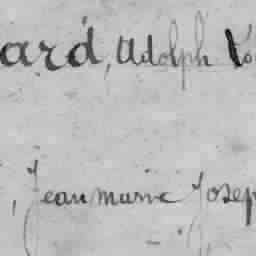 ard, Adolph
, Jean marie Josep